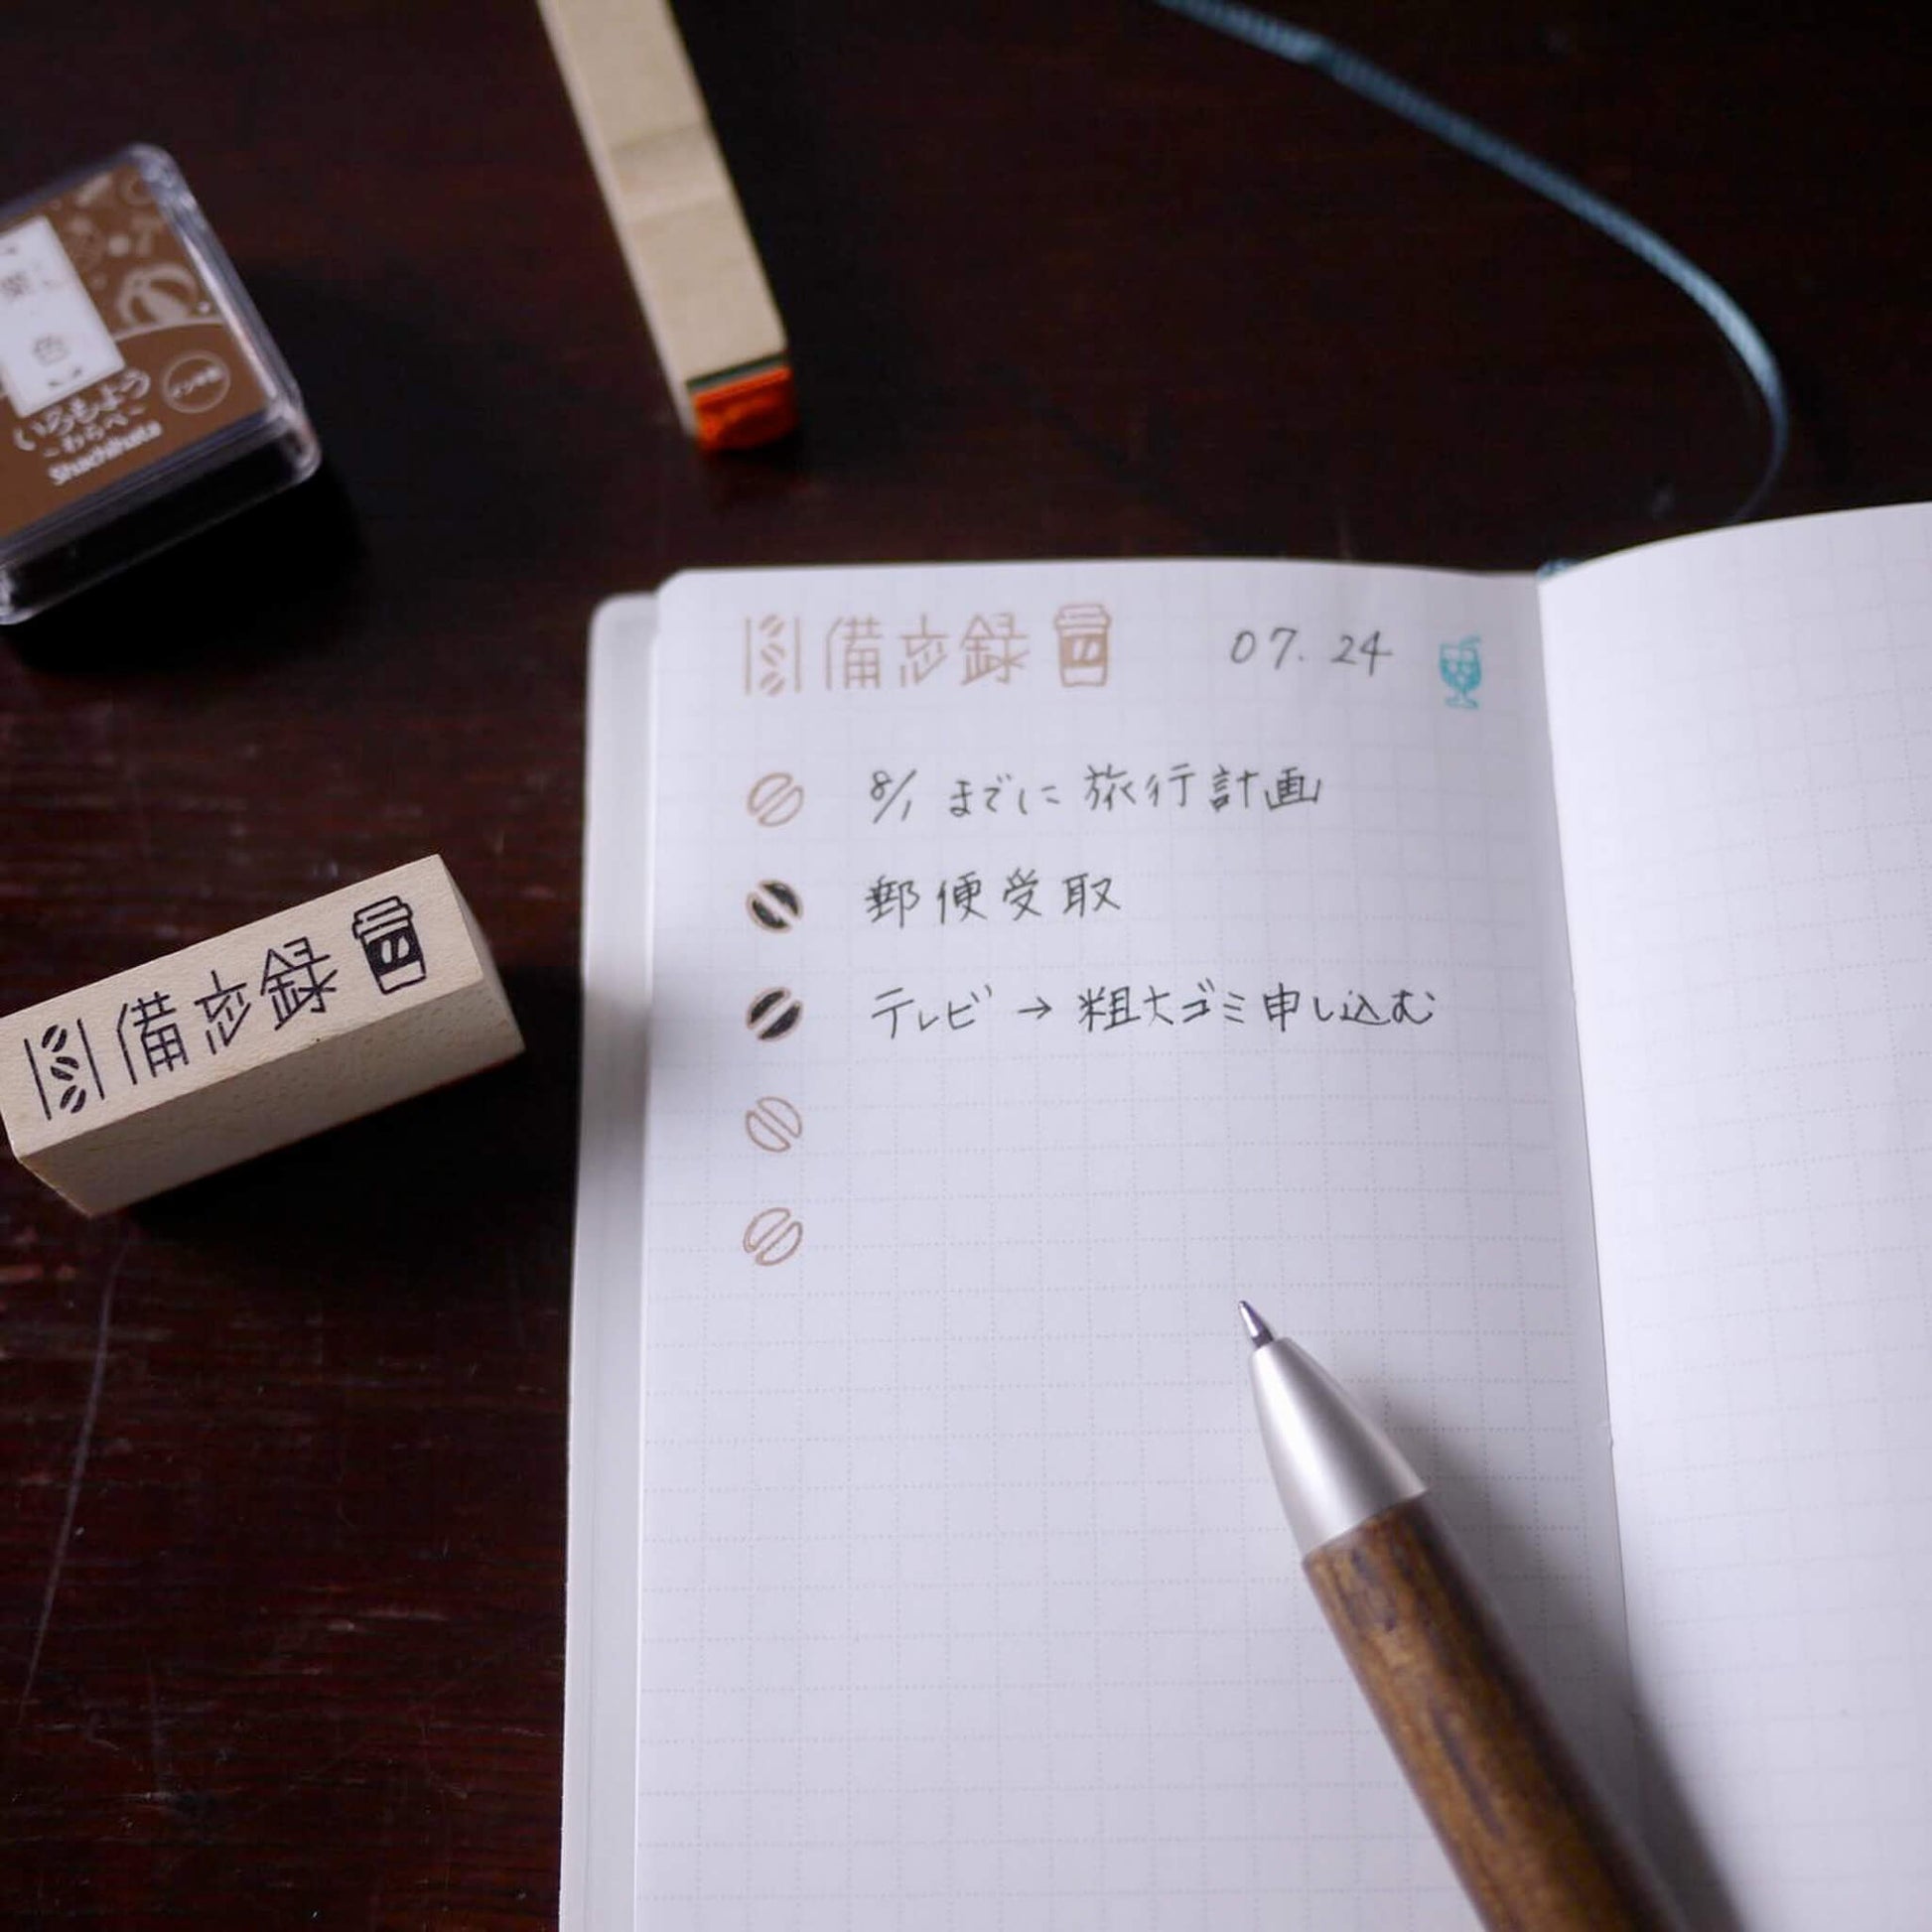 色
いろもよう
-わらべ-
Shachihata
備忘録
07.24
8/1 までに旅行計画
郵便受取
テレビ → 粗大ゴミ申し込む
備忘録